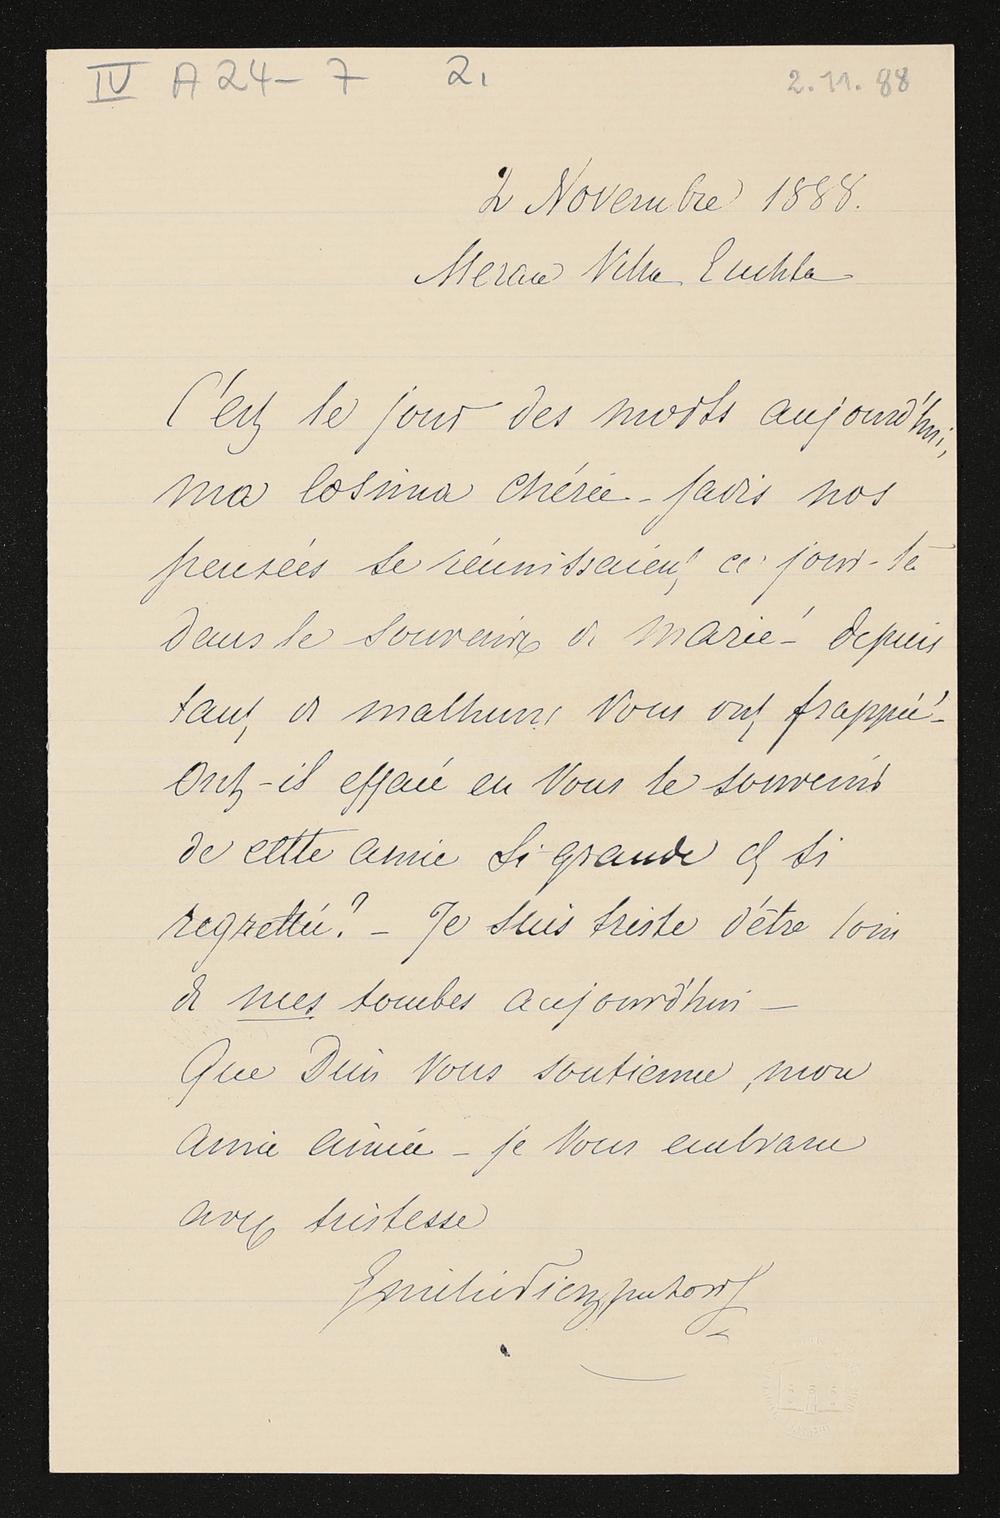 IV A 24 - 7 2,
2.11.88
2 Novembre 1888.
Meran Villa
C'est le jour des morts aujourd'hui,
ma Cosima chérie - jadis nos
pensées se réunissaient ce jour-là
dans le souvenir de Marie - depuis
tant de malheurs vous ont frappée -
Ont-il effacé en vous le souvenir
de cette amie si grande et si
regrettée? - Je suis triste d'être loin
de mes tombes aujourd'hui -
Que Dieu vous soutienne, mon
amie aimée - je vous embrasse
avec tristesse